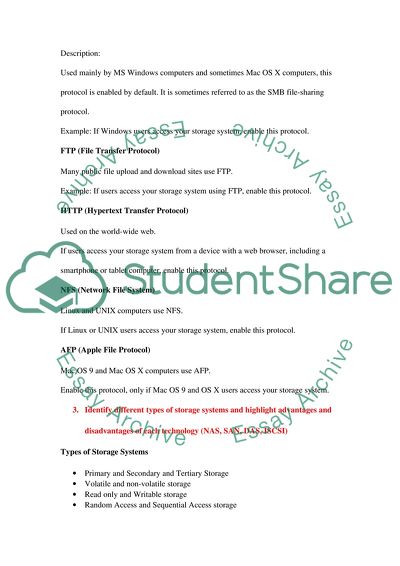 Description:
Used mainly by MS Windows computers and sometimes Mac OS X computers, this
protocol is enabled by default. It is sometimes referred to as the SMB file-sharing
protocol.
Example: If Windows users access your storage system, enable this protocol.
FTP (File Transfer Protocol)
Many public file upload and download sites use FTP.
Example: If users access your storage system using FTP, enable this protocol.
HTTP (Hypertext Transfer Protocol)
Used on the world-wide web.
If users access your storage system from a device with a web browser, including a
smartphone or tablet computer, enable this protocol.
NFS (Network File System)
Linux and UNIX computers use NFS.
If Linux or UNIX users access your storage system, enable this protocol.
AFP (Apple File Protocol)
Mac OS 9 and Mac OS X computers use AFP.
Enable this protocol, only if Mac OS 9 and OS X users access your storage system.
3. Identify different types of storage systems and highlight advantages and
disadvantages of each technology (NAS, SAN, DAS, ISCSI)
Types of Storage Systems
• Primary and Secondary and Tertiary Storage
• Volatile and non-volatile storage
• Read only and Writable storage
• Random Access and Sequential Access storage
StudentShare
Essay Archive
Essay Archive
Essay Archive
Essay Archive